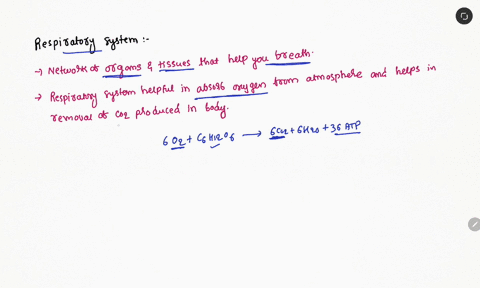 Respiratory system :-
→ Network of organs & tissues that help you breath.
→ Respiratory system helpful in absorb oxygen from atmosphere and helps in
removal of CO2 produced in body.
6 O2 + C6H12O6 → 6CO2 + 6H2O + 36 ATP